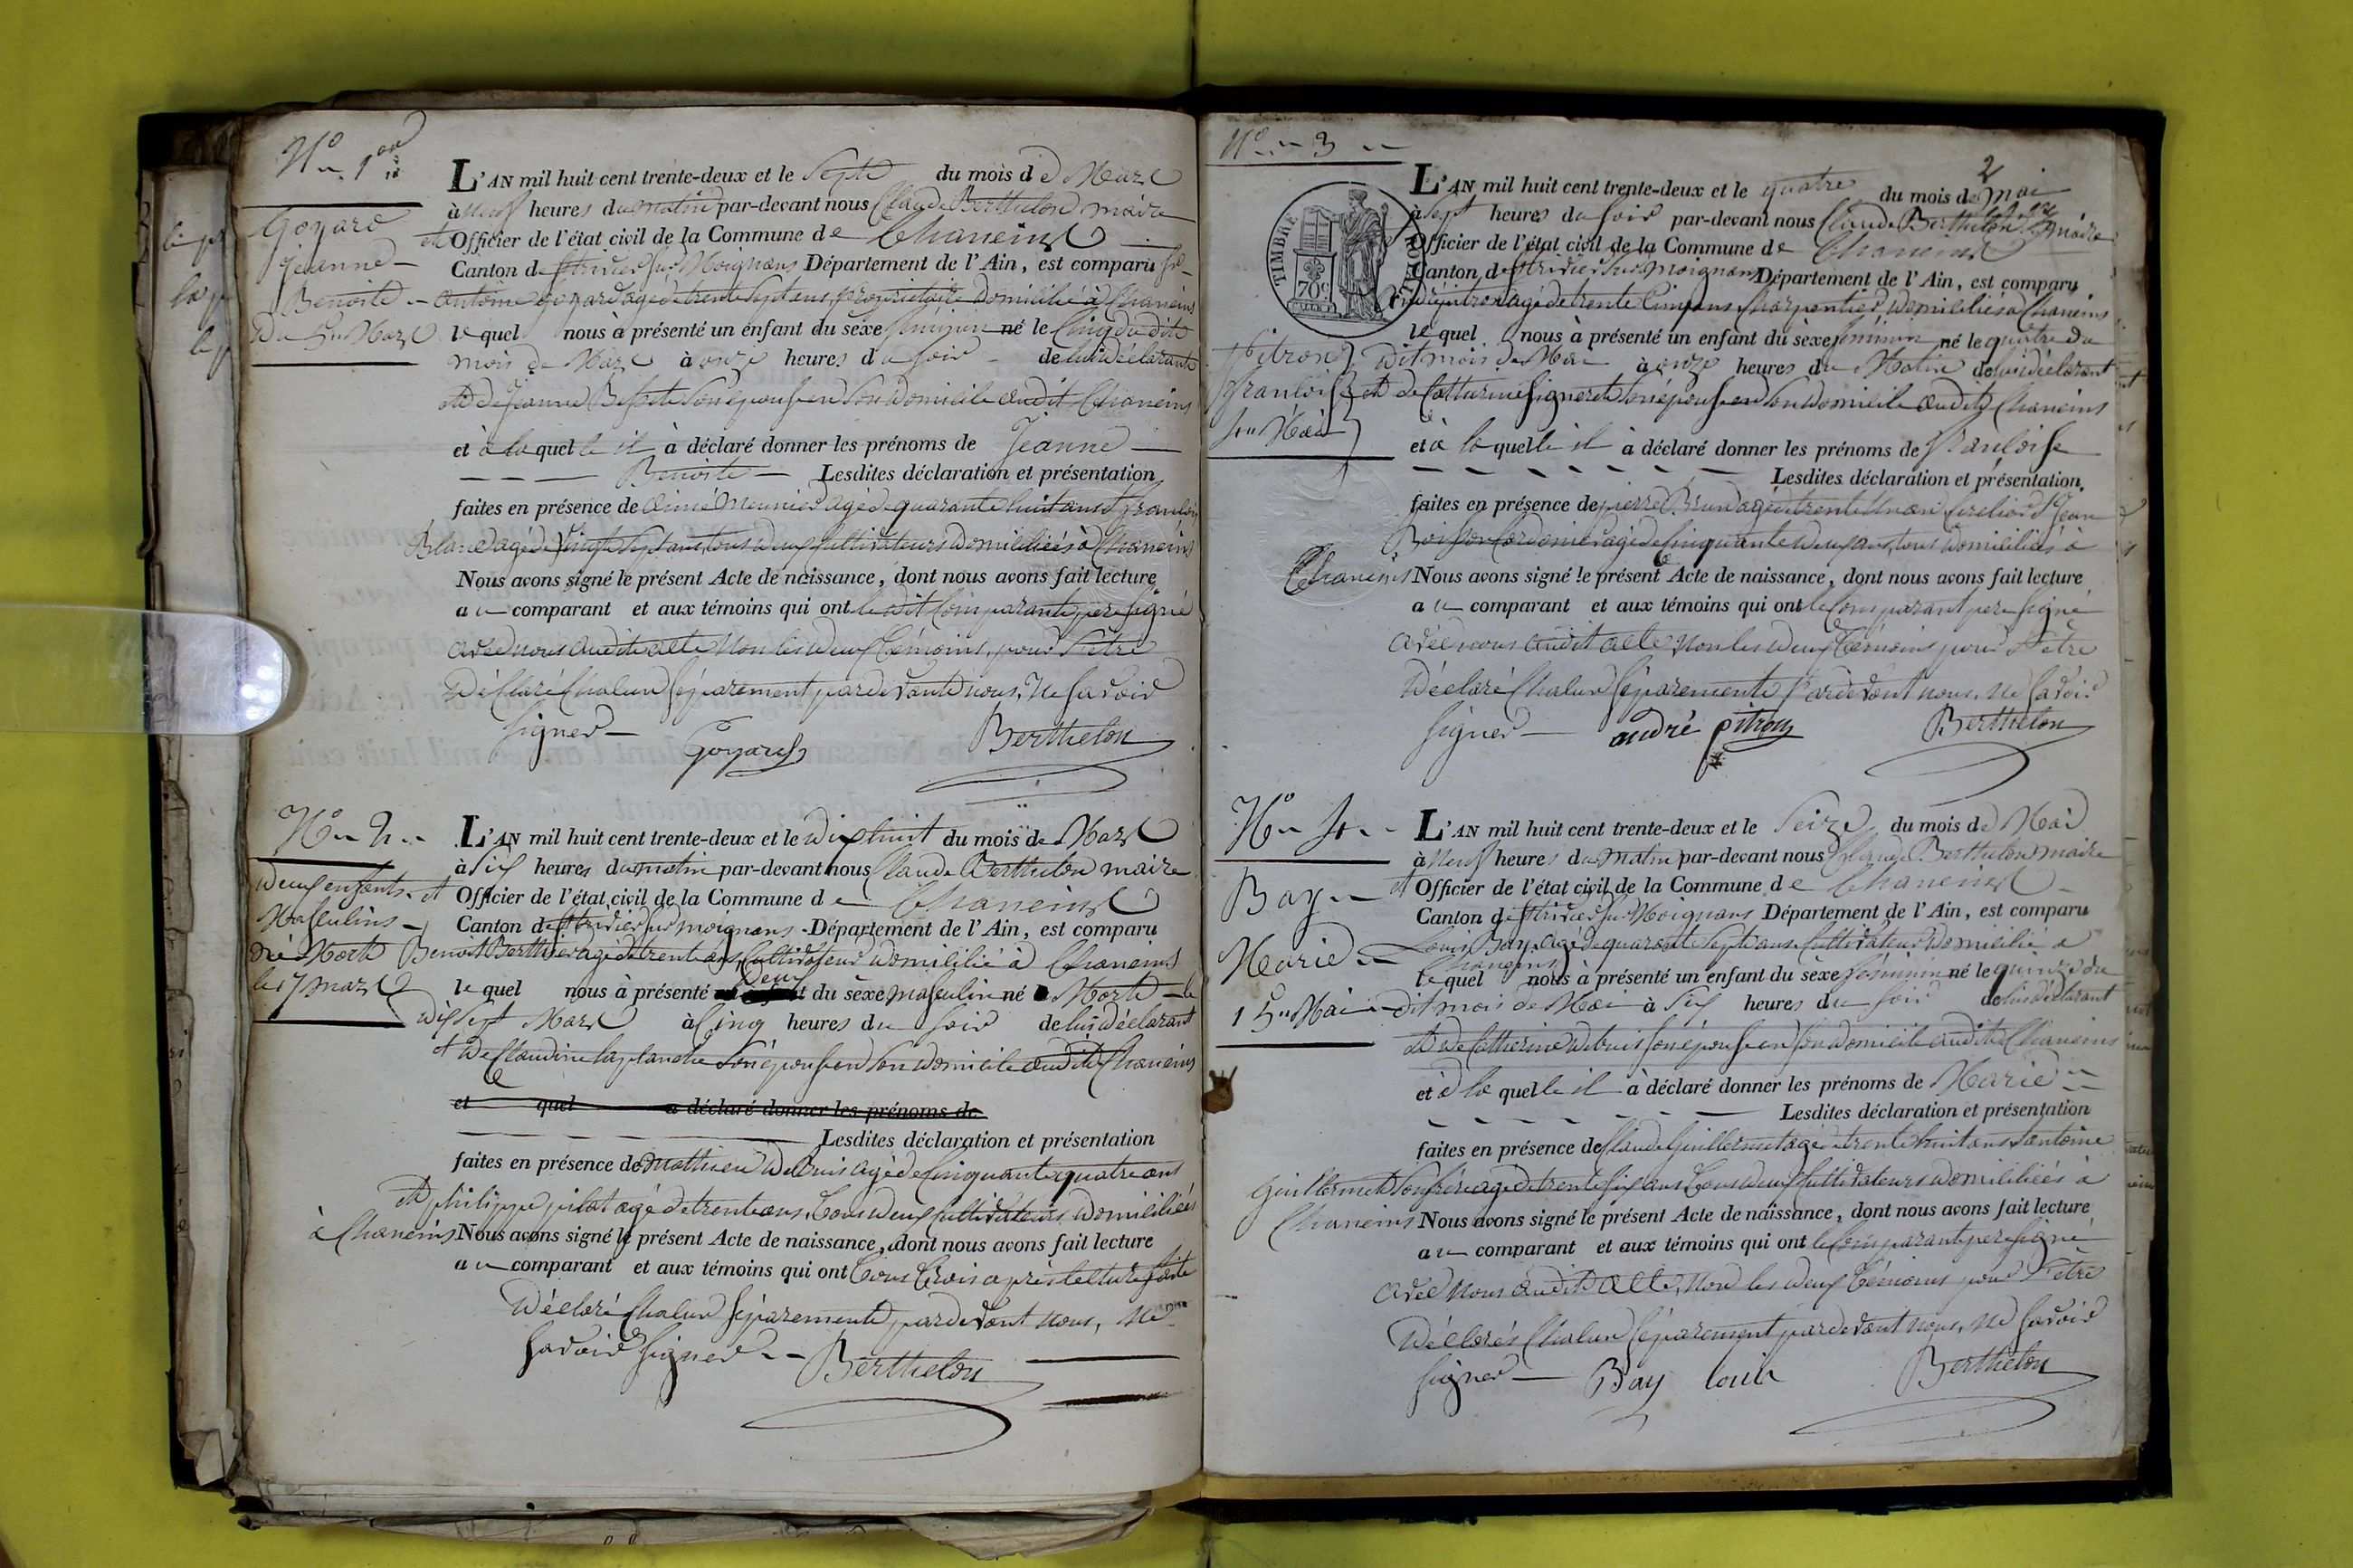 N° 1er
Goyard
Jeanne
Benoite
Du 5 Mars
L'AN mil huit cent trente-deux et le Sept du mois de Mars
à Neuf heures du matin par-devant nous Claude Berthelon maire
et Officier de l'état civil de la Commune de Chaneins
Canton de St trivier sur Moignans Département de l'Ain, est comparu
antoine goyard agé de trente Sept ans proprietaire domicilié à Chaneins
lequel nous à présenté un enfant du sèxe féminin né le Cinq du dit
mois de Mars à onze heures du soir de lui déclarant
et de Jeanne son épouse en son domicile audit Chaneins
et à laquelle il à déclaré donner les prénoms de Jeanne
Benoite Lesdites déclaration et présentation
faites en présence de aimé Meunier agé de quarante huit ans et françois
Bland agé de vingt Sept ans tous deux Cultivateurs domiciliés à Chaneins
Nous avons signé le présent Acte de naissance, dont nous avons fait lecture
au comparant et aux témoins qui ont ledit Comparant pere Signé
avec nous audit acte Non les deux témoins, pour Etre
Déclaré Chacun Séparement pardevant nous, Ne Savoir
Signer
Goyard Berthelon
N° 2
Deux enfants
Masculins
né Morts
le 17 mars
L'AN mil huit cent trente-deux et le dix huit du mois de Mars
à Six heures du matin par-devant nous Claude Berthelon maire
et Officier de l'état civil de la Commune de Chaneins
Canton de St trivier sur moignans Département de l'Ain, est comparu
Benoit Berthier agé de trente ans, Cultivateur domicilié à Chaneins
lequel nous à présenté Deux du sèxe masculin né Morts le
dix Sept Mars à Cinq heures du soir de lui déclarant
et de Claudine laplanche Son épouse en Son domicile audit Chaneins
et quel a déclaré donner les prénoms de
Lesdites déclaration et présentation
faites en présence de Mathieu Debruis agé de Cinquante quatre ans
et philippe pilat agé de trente ans, tous deux Cultivateurs domiciliés
à Chaneins Nous avons signé le présent Acte de naissance, dont nous avons fait lecture
au comparant et aux témoins qui ont tous trois après lecture faite
Déclaré Chacun Séparement pardevant nous, Ne
Savoir Signer
Berthelon
N° 3
2
TIMBRE
70c
pitron
françoise
4 Mai
L'AN mil huit cent trente-deux et le quatre du mois de mai
à Sept heures du soir par-devant nous Claude Berthelon maire
Officier de l'état civil de la Commune de Chaneins
Canton de St trivier sur moignans Département de l'Ain, est comparu
André pitron agé de trente Cinq ans Charpentier domicilié à Chaneins
lequel nous à présenté un enfant du sèxe féminin né le quatre du
dit mois de Mai à onze heures du Matin de lui déclarant
et de Catherine Signeret Son épouse en Son domicile audit Chaneins
et à laquelle il à déclaré donner les prénoms de françoise
Lesdites déclaration et présentation
faites en présence de pierre Brun agé de trente et Jean
Cordonier agé de Cinquante deux ans, tous domiciliés à
Chaneins Nous avons signé le présent Acte de naissance, dont nous avons fait lecture
au comparant et aux témoins qui ont le Comparant pere Signé
avec nous audit acte, Non les deux témoins pour Etre
Déclaré Chacun Séparement pardevant nous, Ne Savoir
Signer
andré pitron Berthelon
N° 4
Bay
Marie
15 Mai
L'AN mil huit cent trente-deux et le Seize du mois de Mai
à Neuf heures du Matin par-devant nous Claude Berthelon maire
et Officier de l'état civil de la Commune de Chaneins
Canton de St trivier sur Moignans Département de l'Ain, est comparu
Louis Bay agé de quarante Sept ans Cultivateur domicilié à
Chaneins
lequel nous à présenté un enfant du sèxe féminin né le quinze du
dit mois de Mai à Six heures du soir de lui déclarant
et de Catherine Debruis Son épouse en Son domicile audit Chaneins
et à laquelle il à déclaré donner les prénoms de Marie
Lesdites déclaration et présentation
faites en présence de Claude Guillermet agé de trente huit ans antoine
Guillermet Son frère agé de trente Six ans tous deux Cultivateurs domiciliés à
Chaneins Nous avons signé le présent Acte de naissance, dont nous avons fait lecture
au comparant et aux témoins qui ont le Comparant pere Signé
avec nous audit acte, Non les deux témoins pour Etre
Déclarés Chacun Séparement pardevant nous, Ne Savoir
Signer
Bay louis Berthelon